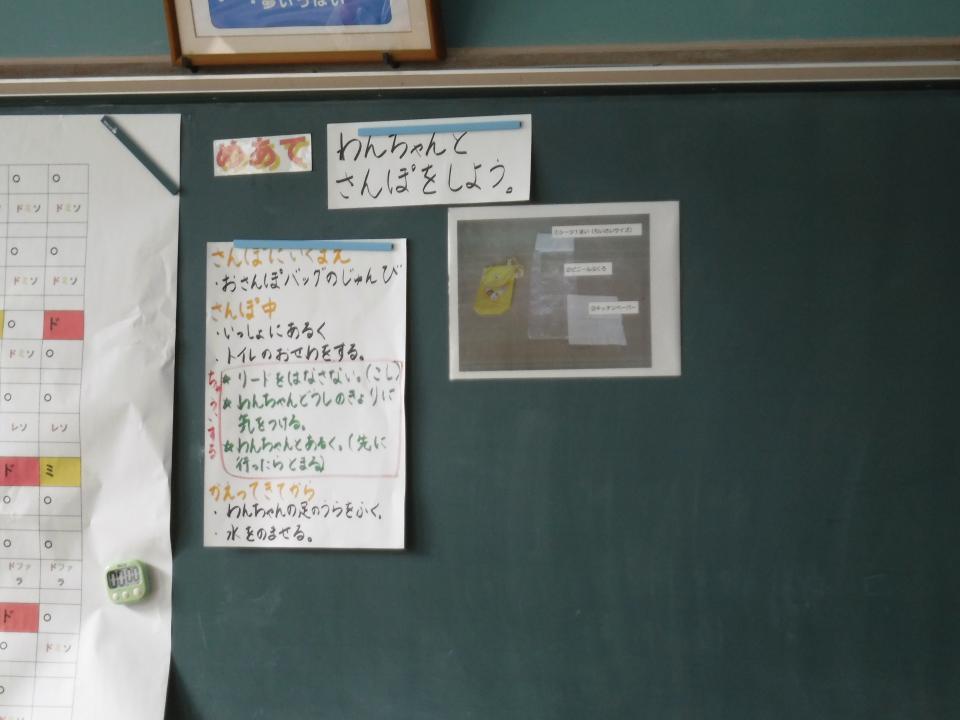 ・夢いっぱい
めあて
わんちゃんと
さんぽをしよう。
さんぽにいくまえ
・おさんぽバッグのじゅんび
さんぽ中
・いっしょにあるく
・トイレのおせわをする。
ちゅういする
★リードをはなさない。(こし)
★わんちゃんどうしのきょりに
気をつける。
★わんちゃんとあるく。(先に
行ったらとまる)
かえってきてから
・わんちゃんの足のうらをふく。
・水をのませる。
①シーツ1まい(ちいさいサイズ)
②ビニールぶくろ
③キッチンペーパー
ドミソ ドミソ
ドミソ ドミソ
ド
ドミソ
レソ レソ
ド ミ
ドファラ ドファラ
ド
ドミソ
ドミソ
00:00